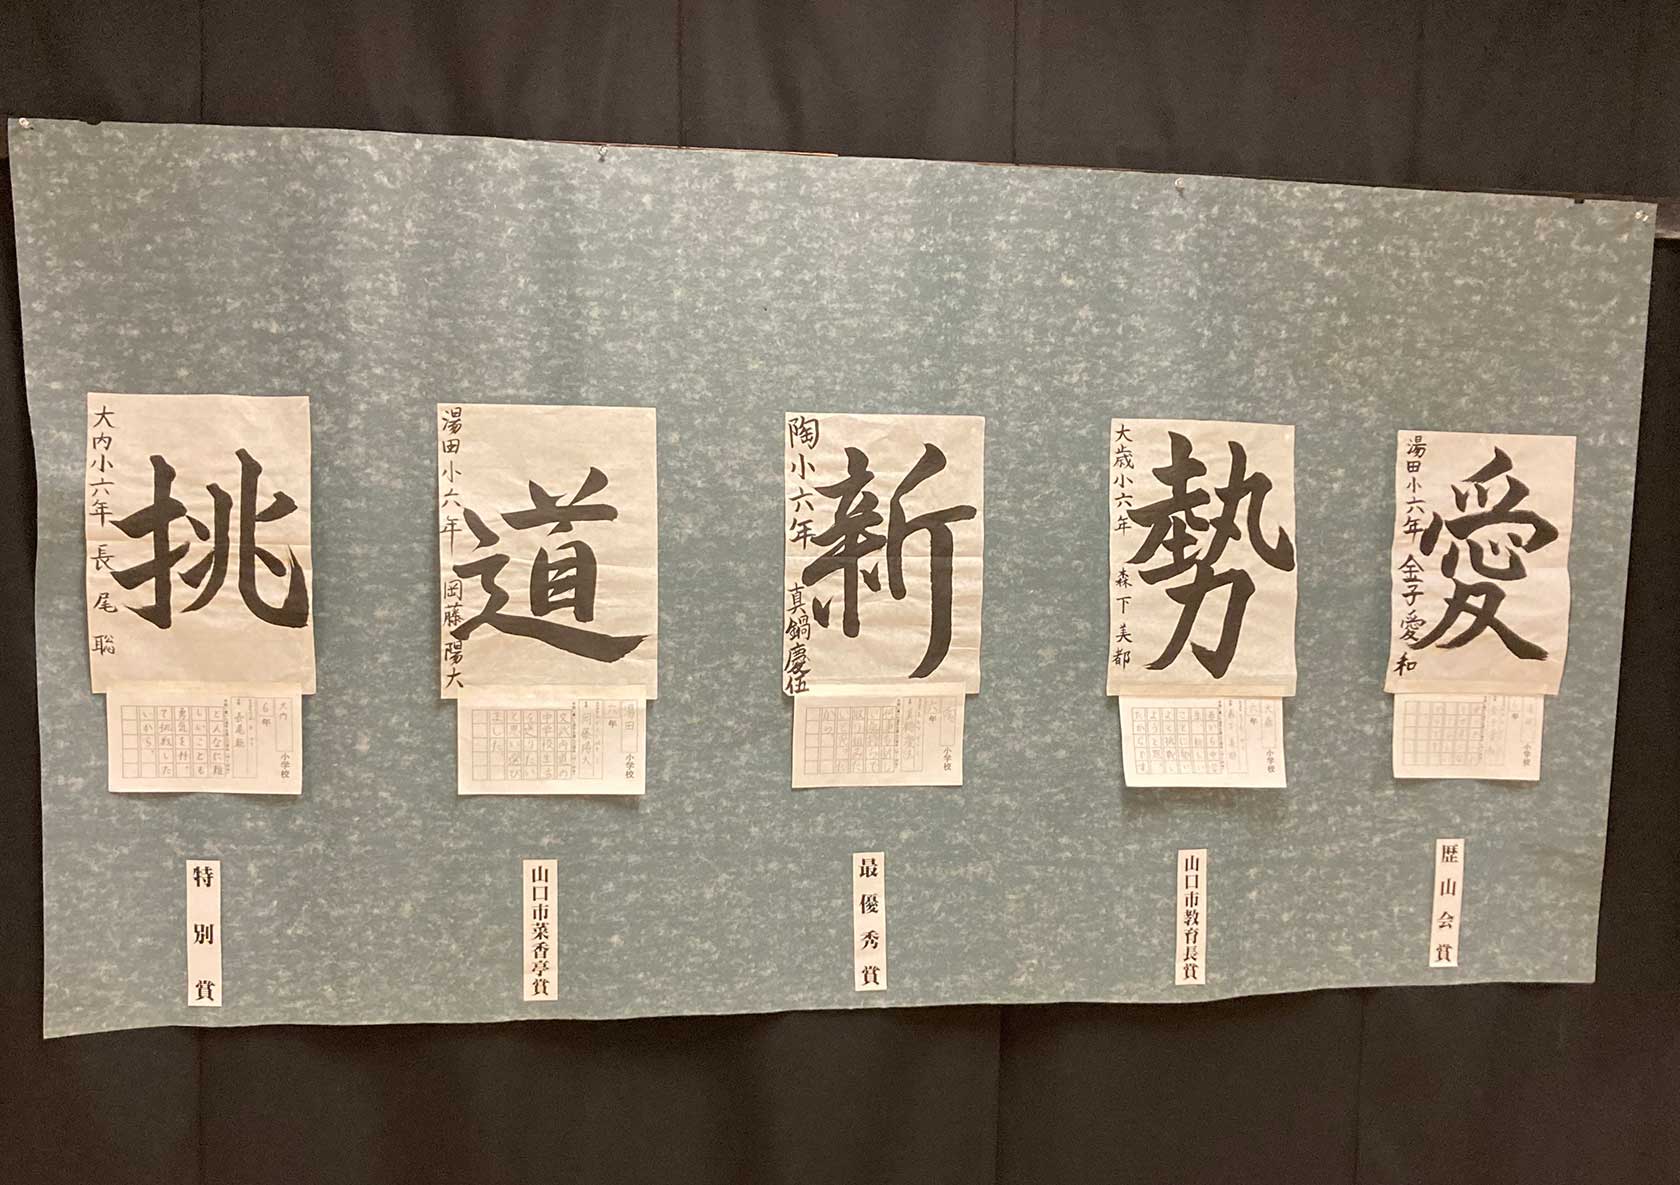 挑
大内小六年 長尾聡
大内
小学校
6年
長尾聡
どんなに難
しいことも
勇気を持っ
て挑戦した
いから。
特別賞
道
湯田小六年 岡藤陽大
湯田
小学校
六年
岡藤陽大
文武両道の
中学校生活
を送りたい
と思い選び
ました。
山口市菜香亭賞
新
陶小六年 真鍋慶伍
小学校
六年
最優秀賞
勢
大歳小六年 森下美都
大歳
小学校
六年
山口市教育長賞
愛
湯田小六年 金子愛和
小学校
歴山会賞